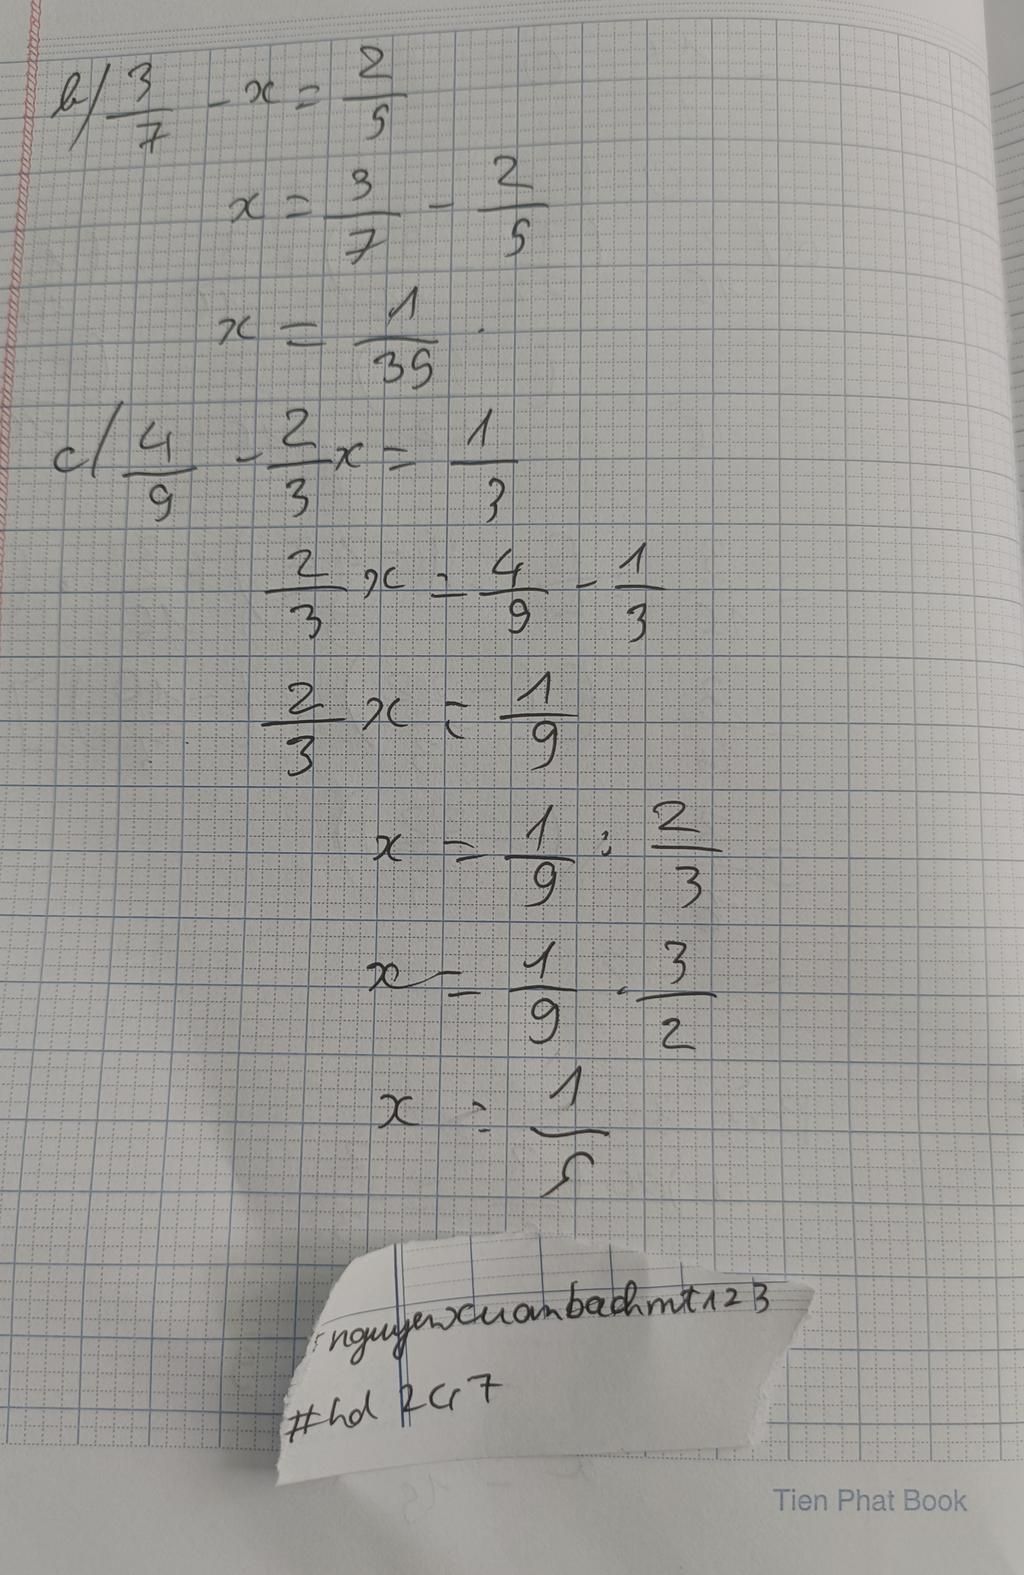 b/ 3/7 - x = 2/5
x = 3/7 - 2/5
x = 1/35 .
c/ 4/9 - 2/3 x = 1/3
2/3 x = 4/9 - 1/3
2/3 x = 1/9
x = 1/9 : 2/3
x = 1/9 . 3/2
x = 1/5
nguyenxuanbachmt123
#hd 247
Tien Phat Book